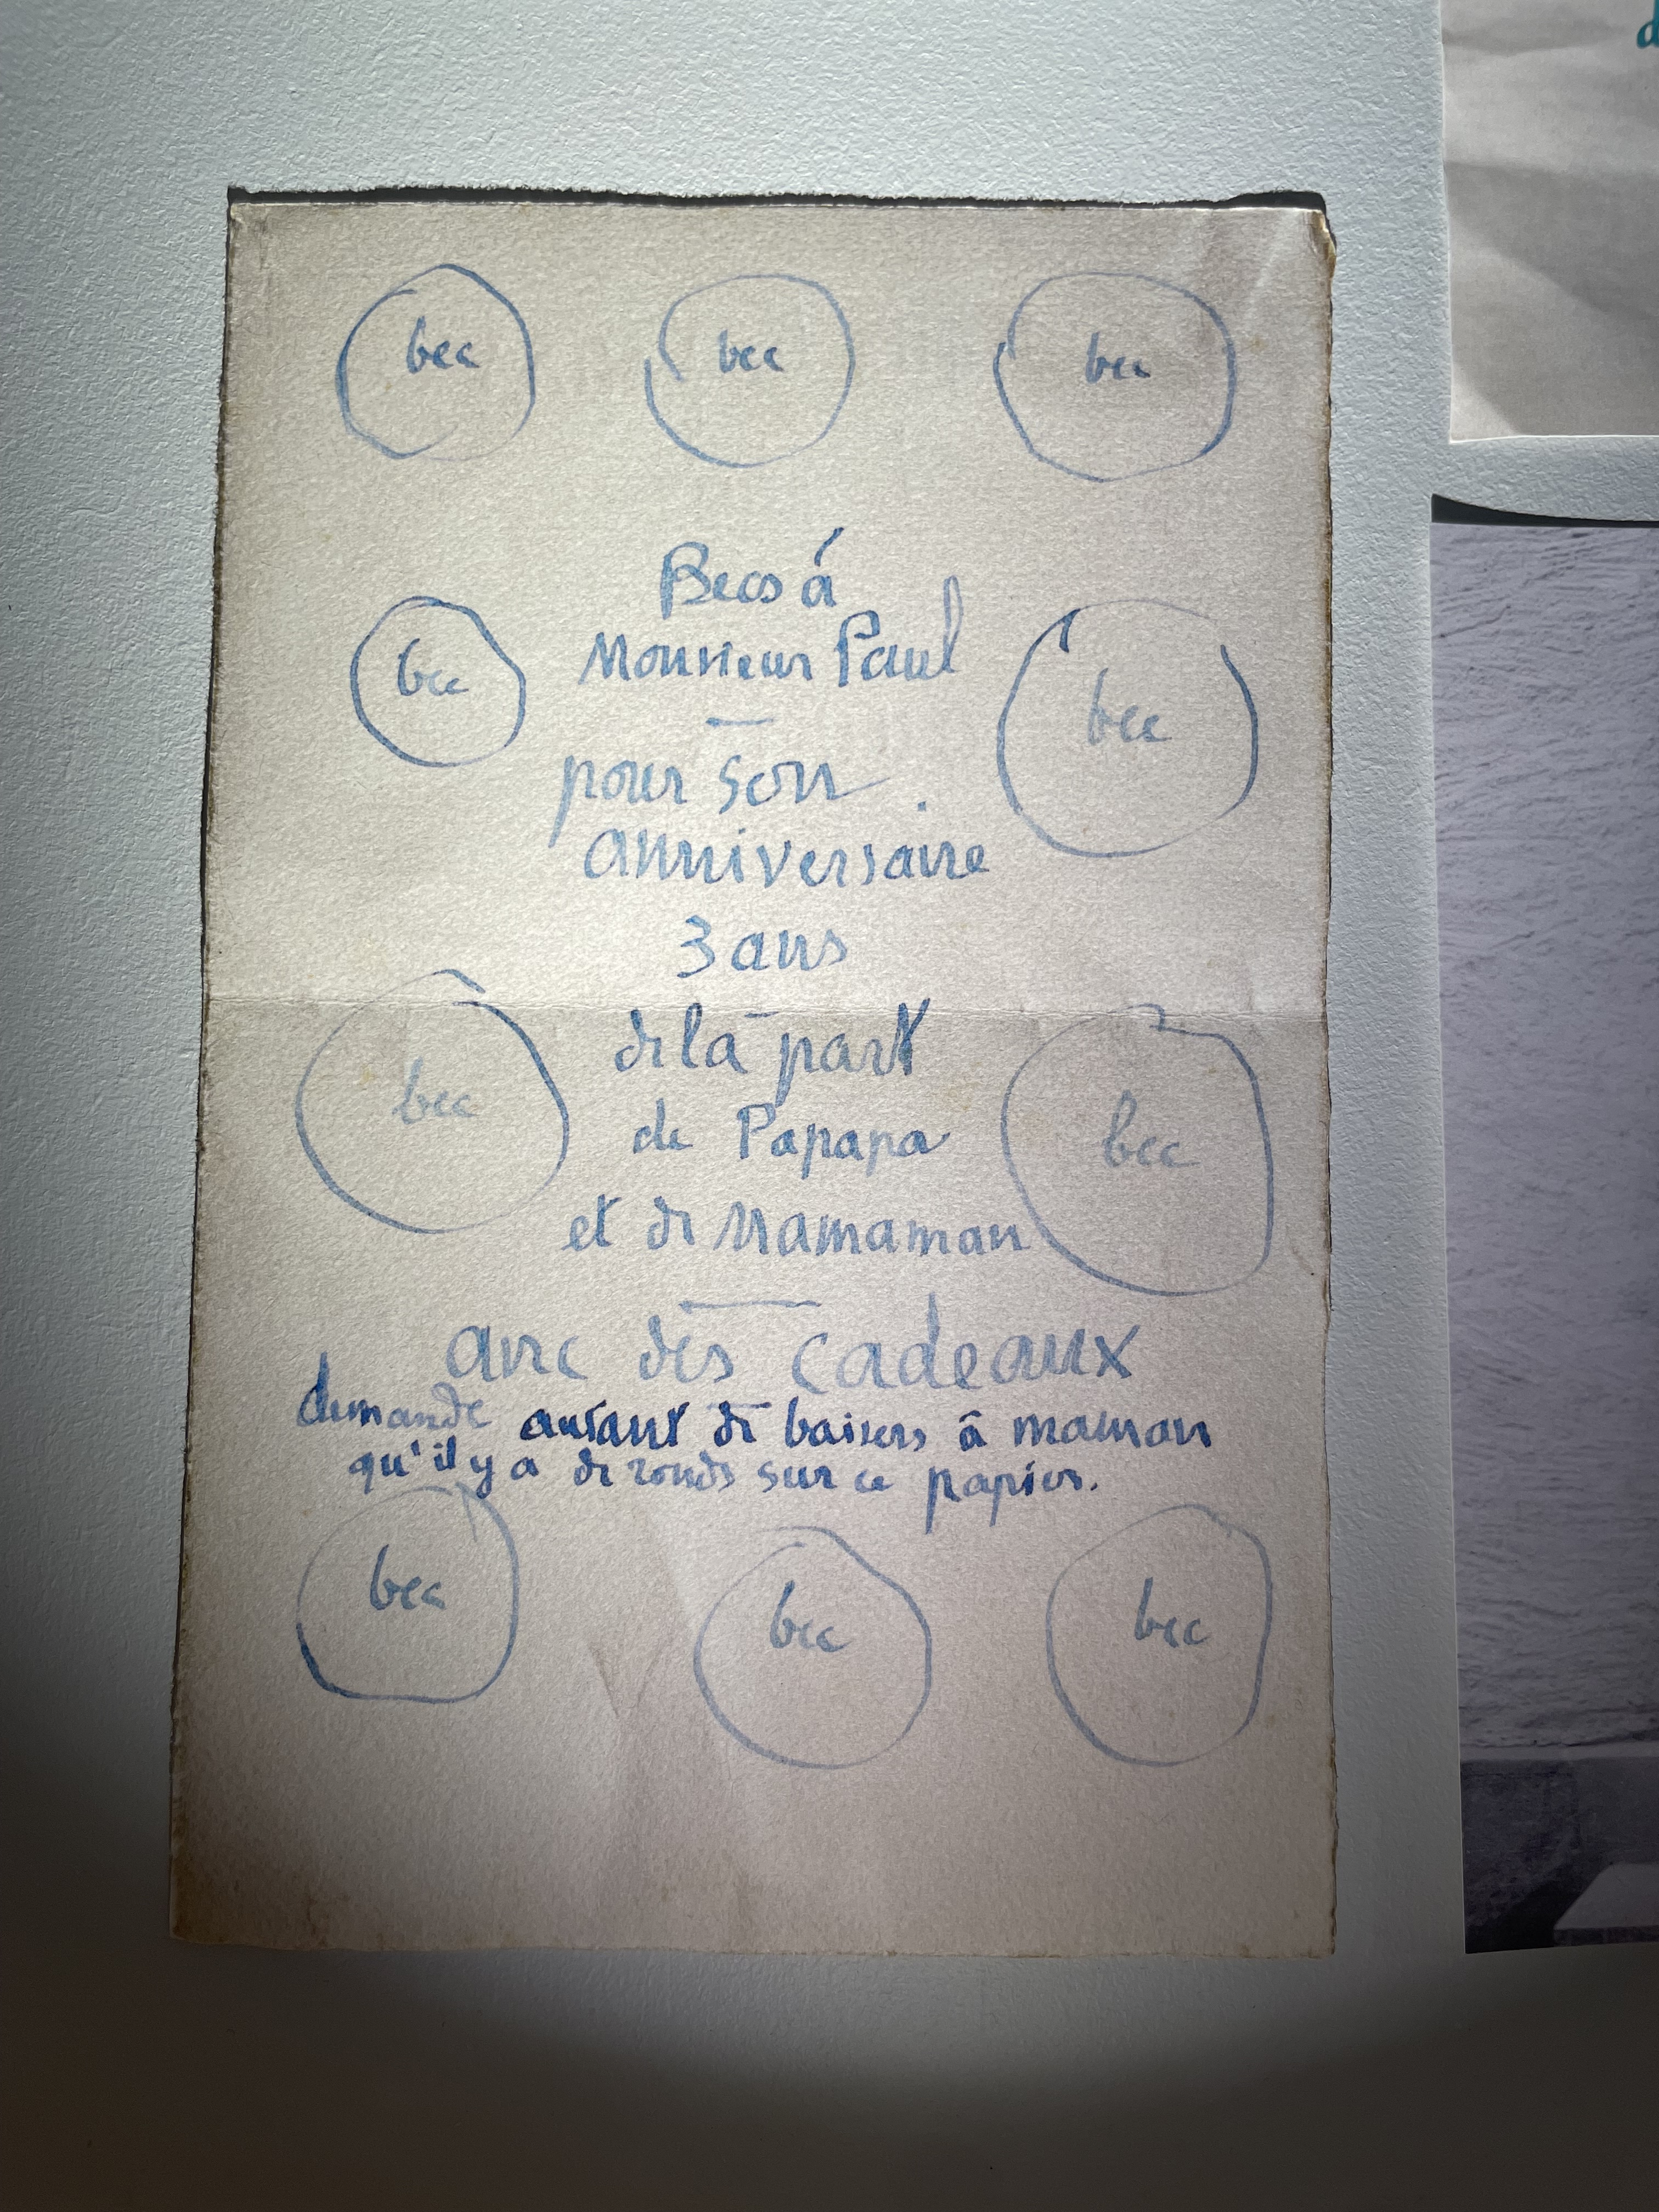 d
bec bec bec
Becs á
Monsieur Paul
bec bec
pour son
anniversaire
3 ans
de la part
bec bec
de Papapa
et de Mamaman
avec des cadeaux
demande autant de baisers à maman
qu'il y a de ronds sur ce papier.
bec bec bec